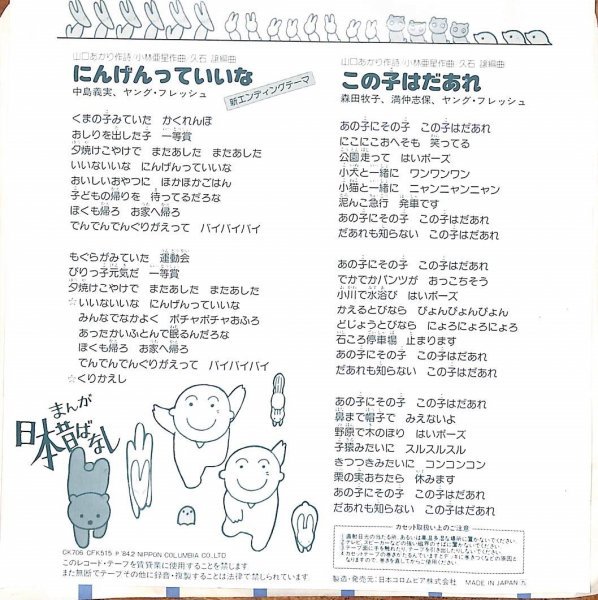 山口あかり作詩 小林亜星作曲 久石 譲編曲
にんげんっていいな
中島義実、ヤング・フレッシュ
新エンディングテーマ
くまの子みていた かくれんぼ
おしりを出した子 一等賞
夕焼けこやけで またあした またあした
いいないいな にんげんっていいな
おいしいおやつに ほかほかごはん
子どもの帰りを 待ってるだろな
ぼくも帰ろ お家へ帰ろ
でんでんでんぐりがえって バイバイバイ
もぐらがみていた 運動会
びりっ子元気だ 一等賞
夕焼けこやけで またあした またあした
☆いいないいな にんげんっていいな
みんなでなかよく ポチャポチャおふろ
あったかいふとんで眠るんだろな
ぼくも帰ろ お家へ帰ろ
でんでんでんぐりがえって バイバイバイ
☆くりかえし
まんが
日本昔ばなし
CK706 CFK515 ℗'84.2 NIPPON COLUMBIA CO.,LTD
このレコード・テープを賃貸業に使用することを禁じます
また無断でテープその他に録音・複製することは法律で禁じられています
山口あかり作詩 小林亜星作曲 久石 譲編曲
この子はだあれ
森田牧子、満仲志保、ヤング・フレッシュ
あの子にその子 この子はだあれ
にこにこおへそも 笑ってる
公園走って はいポーズ
小犬と一緒に ワンワンワン
小猫と一緒に ニャンニャンニャン
泥んこ急行 発車です
あの子にその子 この子はだあれ
だあれも知らない この子はだあれ
あの子にその子 この子はだあれ
でかでかパンツが おっこちそう
小川で水浴び はいポーズ
かえるとびなら ぴょんぴょんぴょん
どじょうとびなら にょろにょろにょろ
石ころ停車場 止まります
あの子にその子 この子はだあれ
だあれも知らない この子はだあれ
あの子にその子 この子はだあれ
鼻まで帽子で みえないよ
野原で木のぼり はいポーズ
子猿みたいに スルスルスル
きつつきみたいに コンコンコン
栗の実おちたら 休みます
あの子にその子 この子はだあれ
だあれも知らない この子はだあれ
カセット取扱い上のご注意
製造・発売元：日本コロムビア株式会社 MADE IN JAPAN